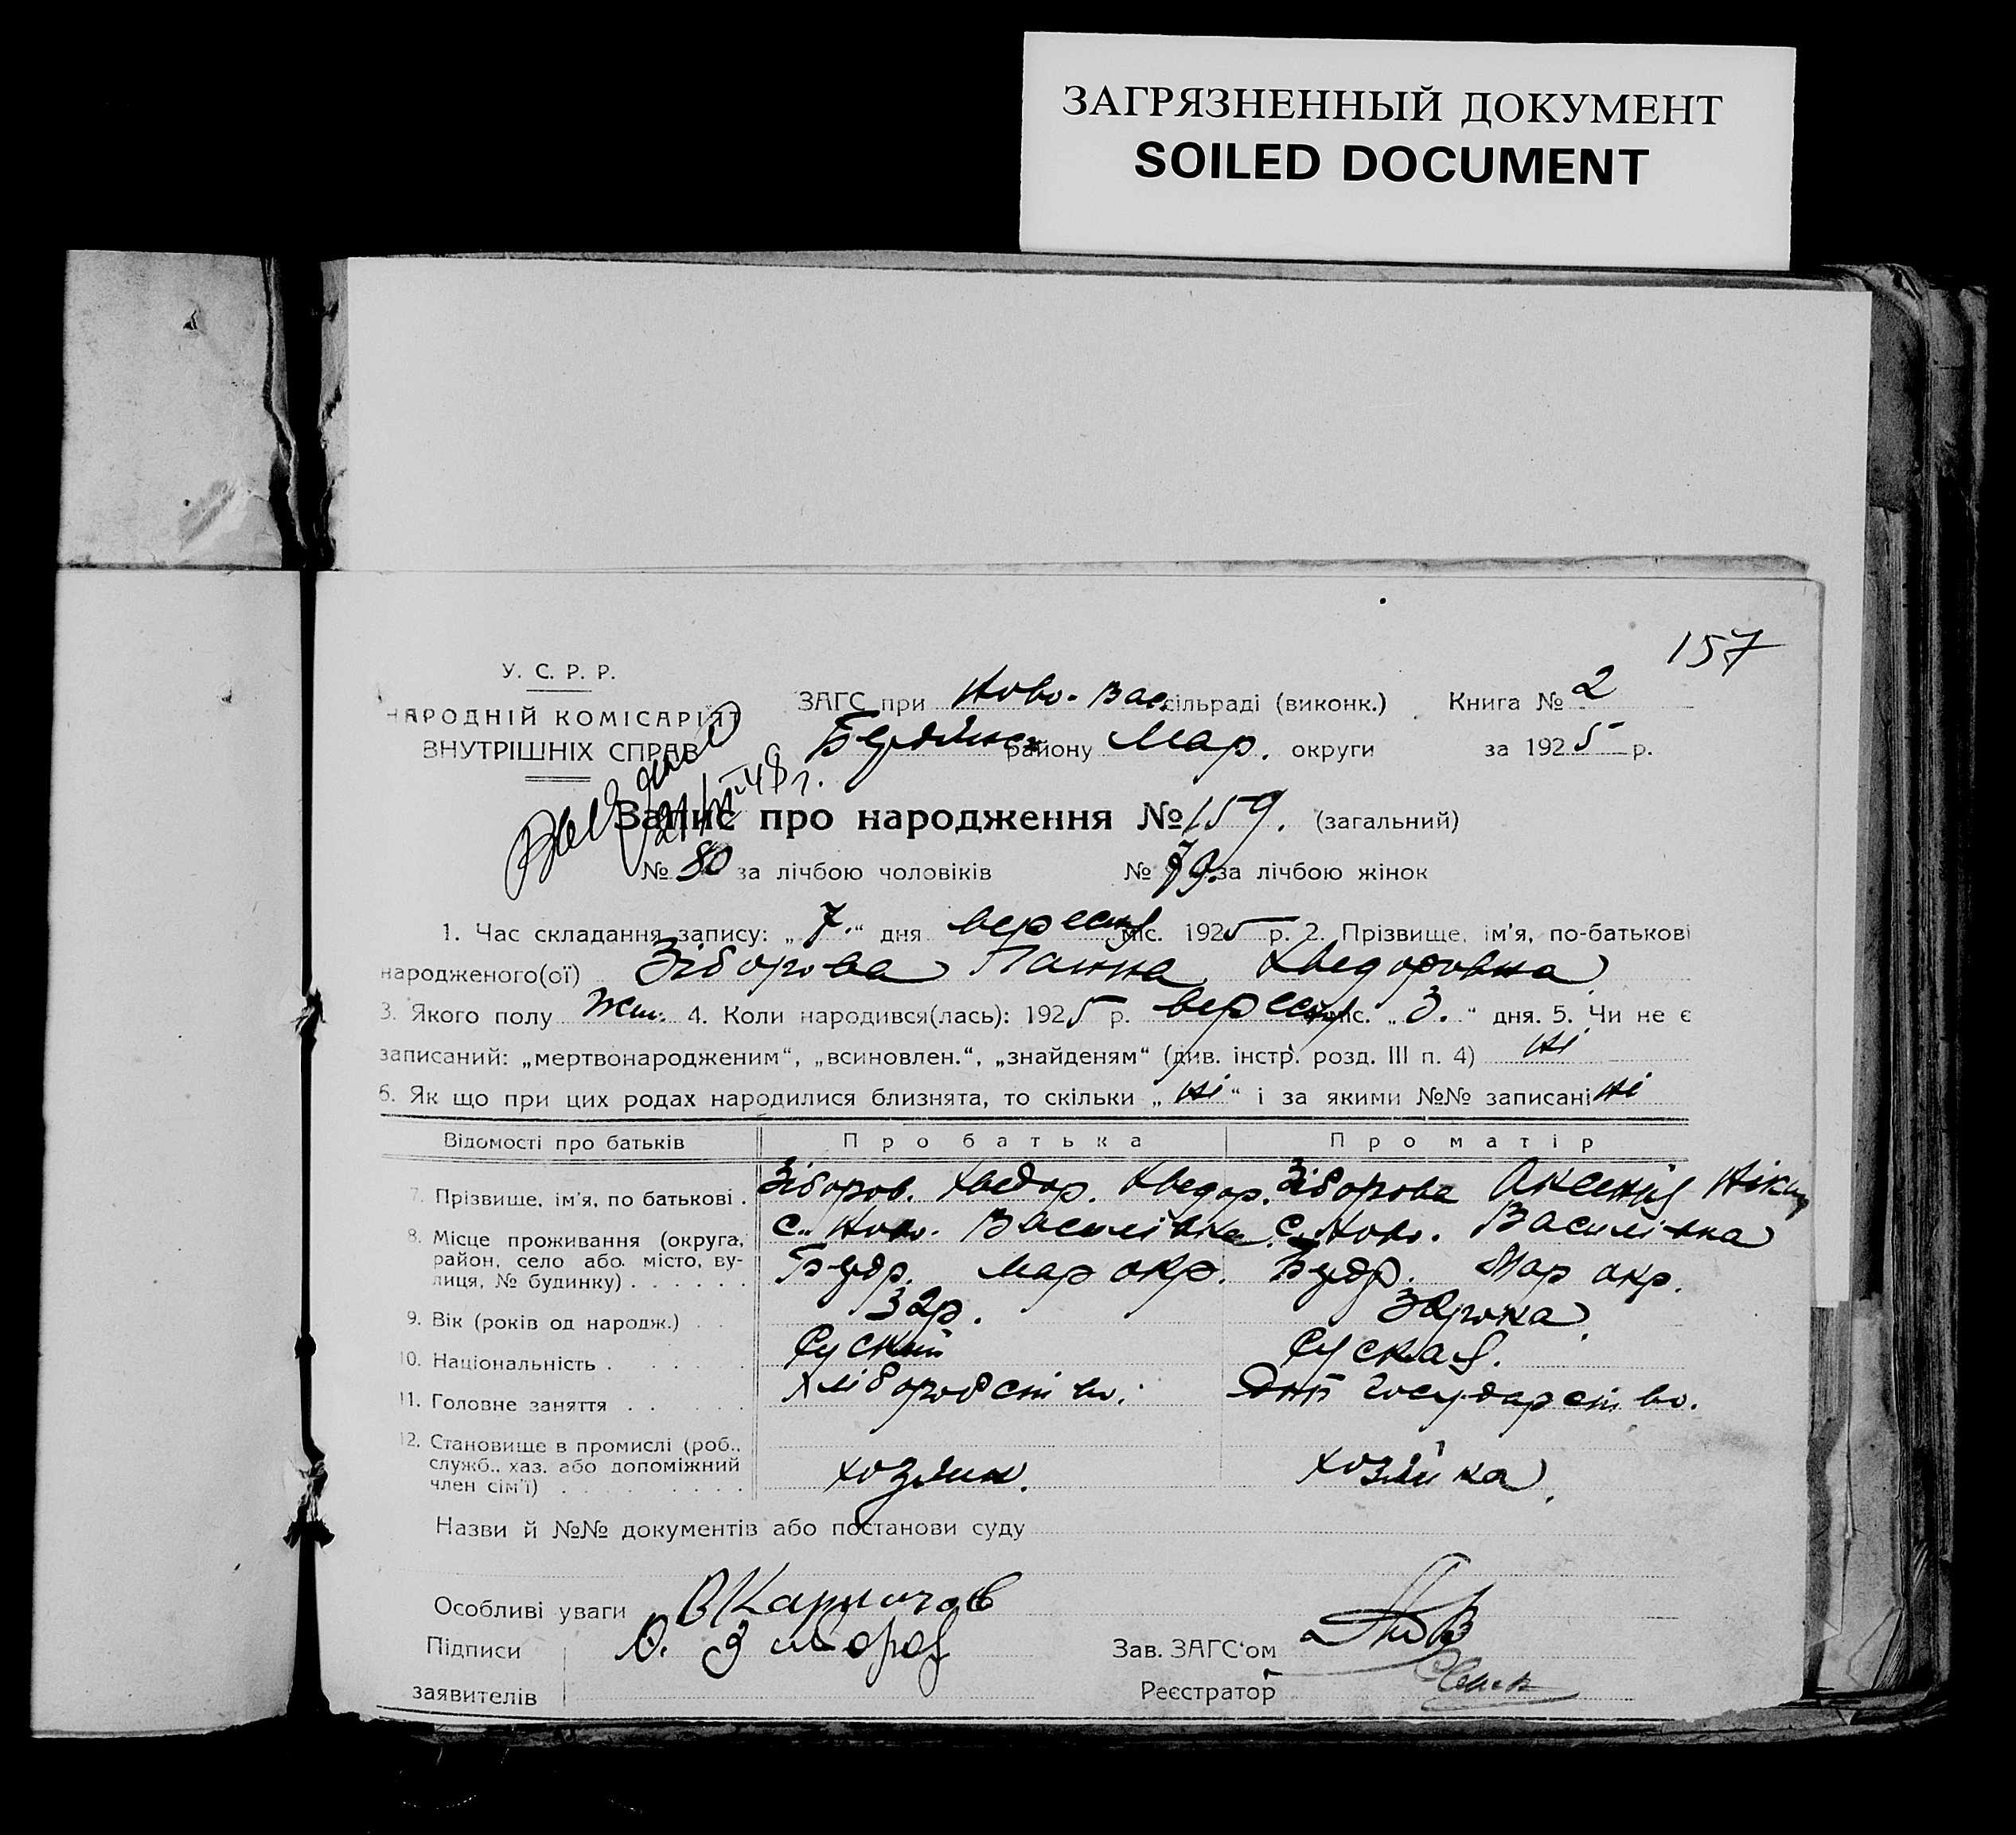 ЗАГРЯЗНЕННЫЙ ДОКУМЕНТ
SOILED DOCUMENT
157
У. С. Р. Р.
НАРОДНІЙ КОМІСАРІЯТ
ВНУТРІШНІХ СПРАВ
ЗАГС при Ново-Вас. сільраді (виконк.) Книга № 2
району Мар. округи за 1925 р.
48 г.
Запис про народження № 159. (загальний)
№ 80 за лічбою чоловіків № 79 за лічбою жінок
1. Час складання запису: „7.“ дня вересня міс. 1925 р. 2. Прізвище, ім'я, по-батькові
народженого(ої) Зіборова Ханна Хведоровна
3. Якого полу Жін. 4. Коли народився(лась): 1925 р. вересня міс. „3.“ дня. 5. Чи не є
записаний: „мертвонародженим“, „всиновлен.“, „знайденям“ (див. інстр. розд. III п. 4) ні
6. Як що при цих родах народилися близнята, то скільки „ні“ і за якими №№ записані ні
Відомості про батьків Про батька Про матір
7. Прізвище, ім'я, по батькові . Зіборов. Хведор. Хведор. Зіборова Аксенія Нікит
8. Місце проживання (округа, район, село або місто, вулиця, № будинку) . . . . . .
с. Ново. Василівка с. Ново. Василівка
Мар окр. Мар окр.
9. Вік (років од народж.) . . 32р.
10. Національність . . . . . Руский Руская.
11. Головне заняття . . . . . Хліборобство. Дом Государство.
12. Становище в промислі (роб., служб., хаз. або допоміжний член сім'ї) . . . . . . . . .
хозяин. хозяйка.
Назви й №№ документів або постанови суду
Особливі уваги
Підписи
заявителів
Зав. ЗАГС'ом
Реєстратор